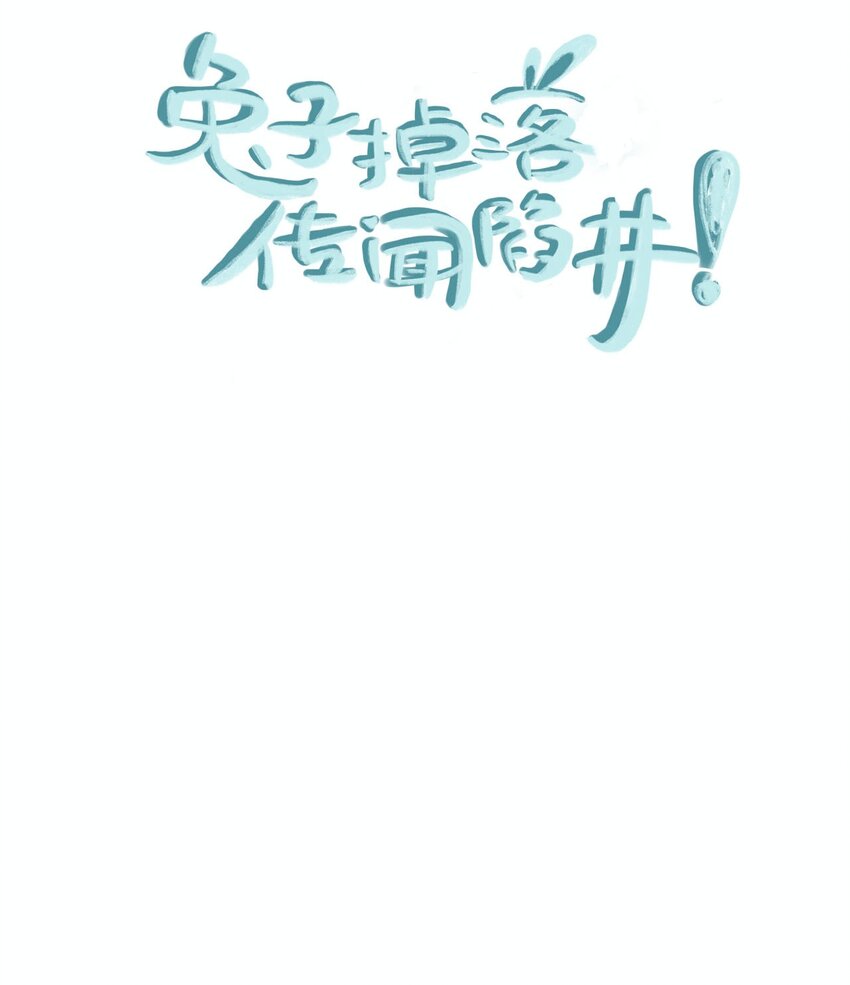 兔子掉落
传闻陷井!